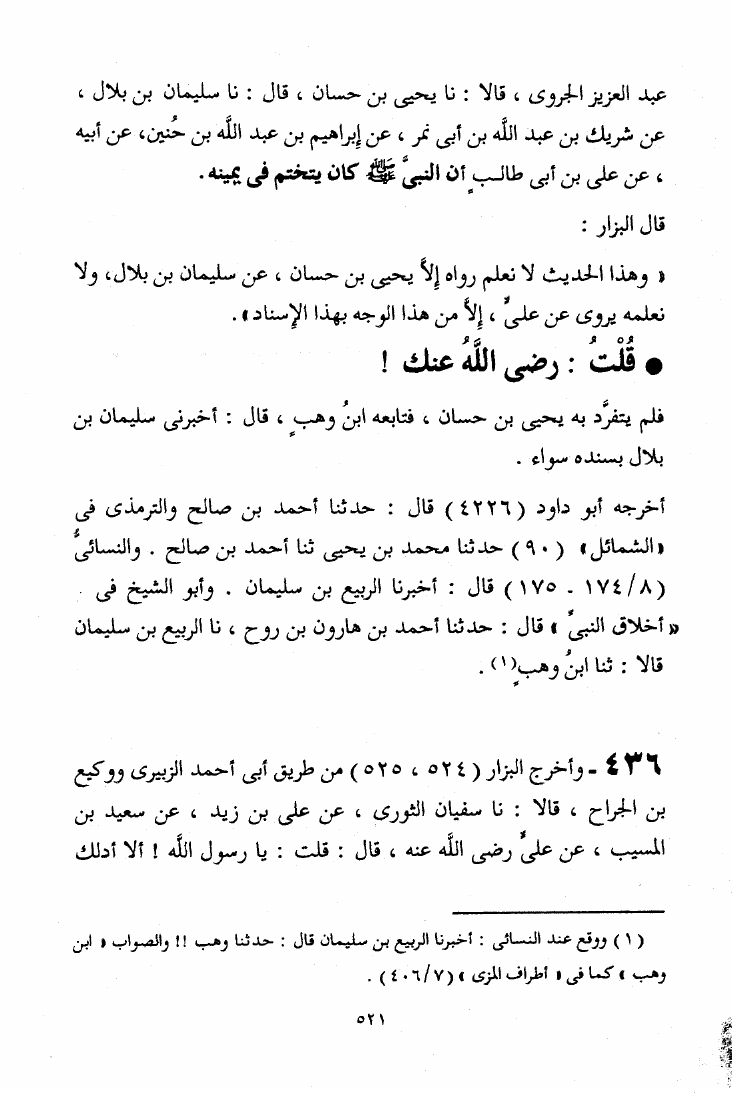 عبد العزيز الجروى ، قالا : نا يحيى بن حسان ، قال : نا سليمان بن بلال ،
عن شريك بن عبد اللَّه بن أبى نمر ، عن إبراهيم بن عبد اللَّه بن حُنين، عن أبيه
، عن على بن أبى طالبٍ أن النبىَّ ﷺ كان يتختم فى يمينه.
قال البزار :
« وهذا الحديث لا نعلم رواه إلاَّ يحيى بن حسان ، عن سليمان بن بلال، ولا
نعلمه يروى عن علىٍّ ، إلاَّ من هذا الوجه بهذا الإسناد».
● قُلْتُ : رضى اللَّهُ عنك !
فلم يتفرَّد به يحيى بن حسان ، فتابعه ابنُ وهبٍ ، قال : أخبرنى سليمان بن
بلال بسنده سواء .
أخرجه أبو داود (٤٢٢٦) قال : حدثنا أحمد بن صالح والترمذى فى
«الشمائل» (٩٠) حدثنا محمد بن يحيى ثنا أحمد بن صالح . والنسائىُّ
(٨/ ١٧٤ - ١٧٥) قال : أخبرنا الربيع بن سليمان . وأبو الشيخ فى
«أخلاق النبىِّ» قال : حدثنا أحمد بن هارون بن روح ، نا الربيع بن سليمان
قالا : ثنا ابنُ وهبٍ(١) .
٤٣٦ - وأخرج البزار (٥٢٤ ، ٥٢٥) من طريق أبى أحمد الزبيرى ووكيع
بن الجراح ، قالا : نا سفيان الثورى ، عن على بن زيد ، عن سعيد بن
المسيب ، عن علىٍّ رضى اللَّه عنه ، قال : قلت : يا رسول اللَّه ! ألا أدلك
(١) ووقع عند النسائى : أخبرنا الربيع بن سليمان قال : حدثنا وهب !! والصواب « ابن
وهب » كما فى « أطراف المزى » (٧/ ٤٠٦) .
٥٢١